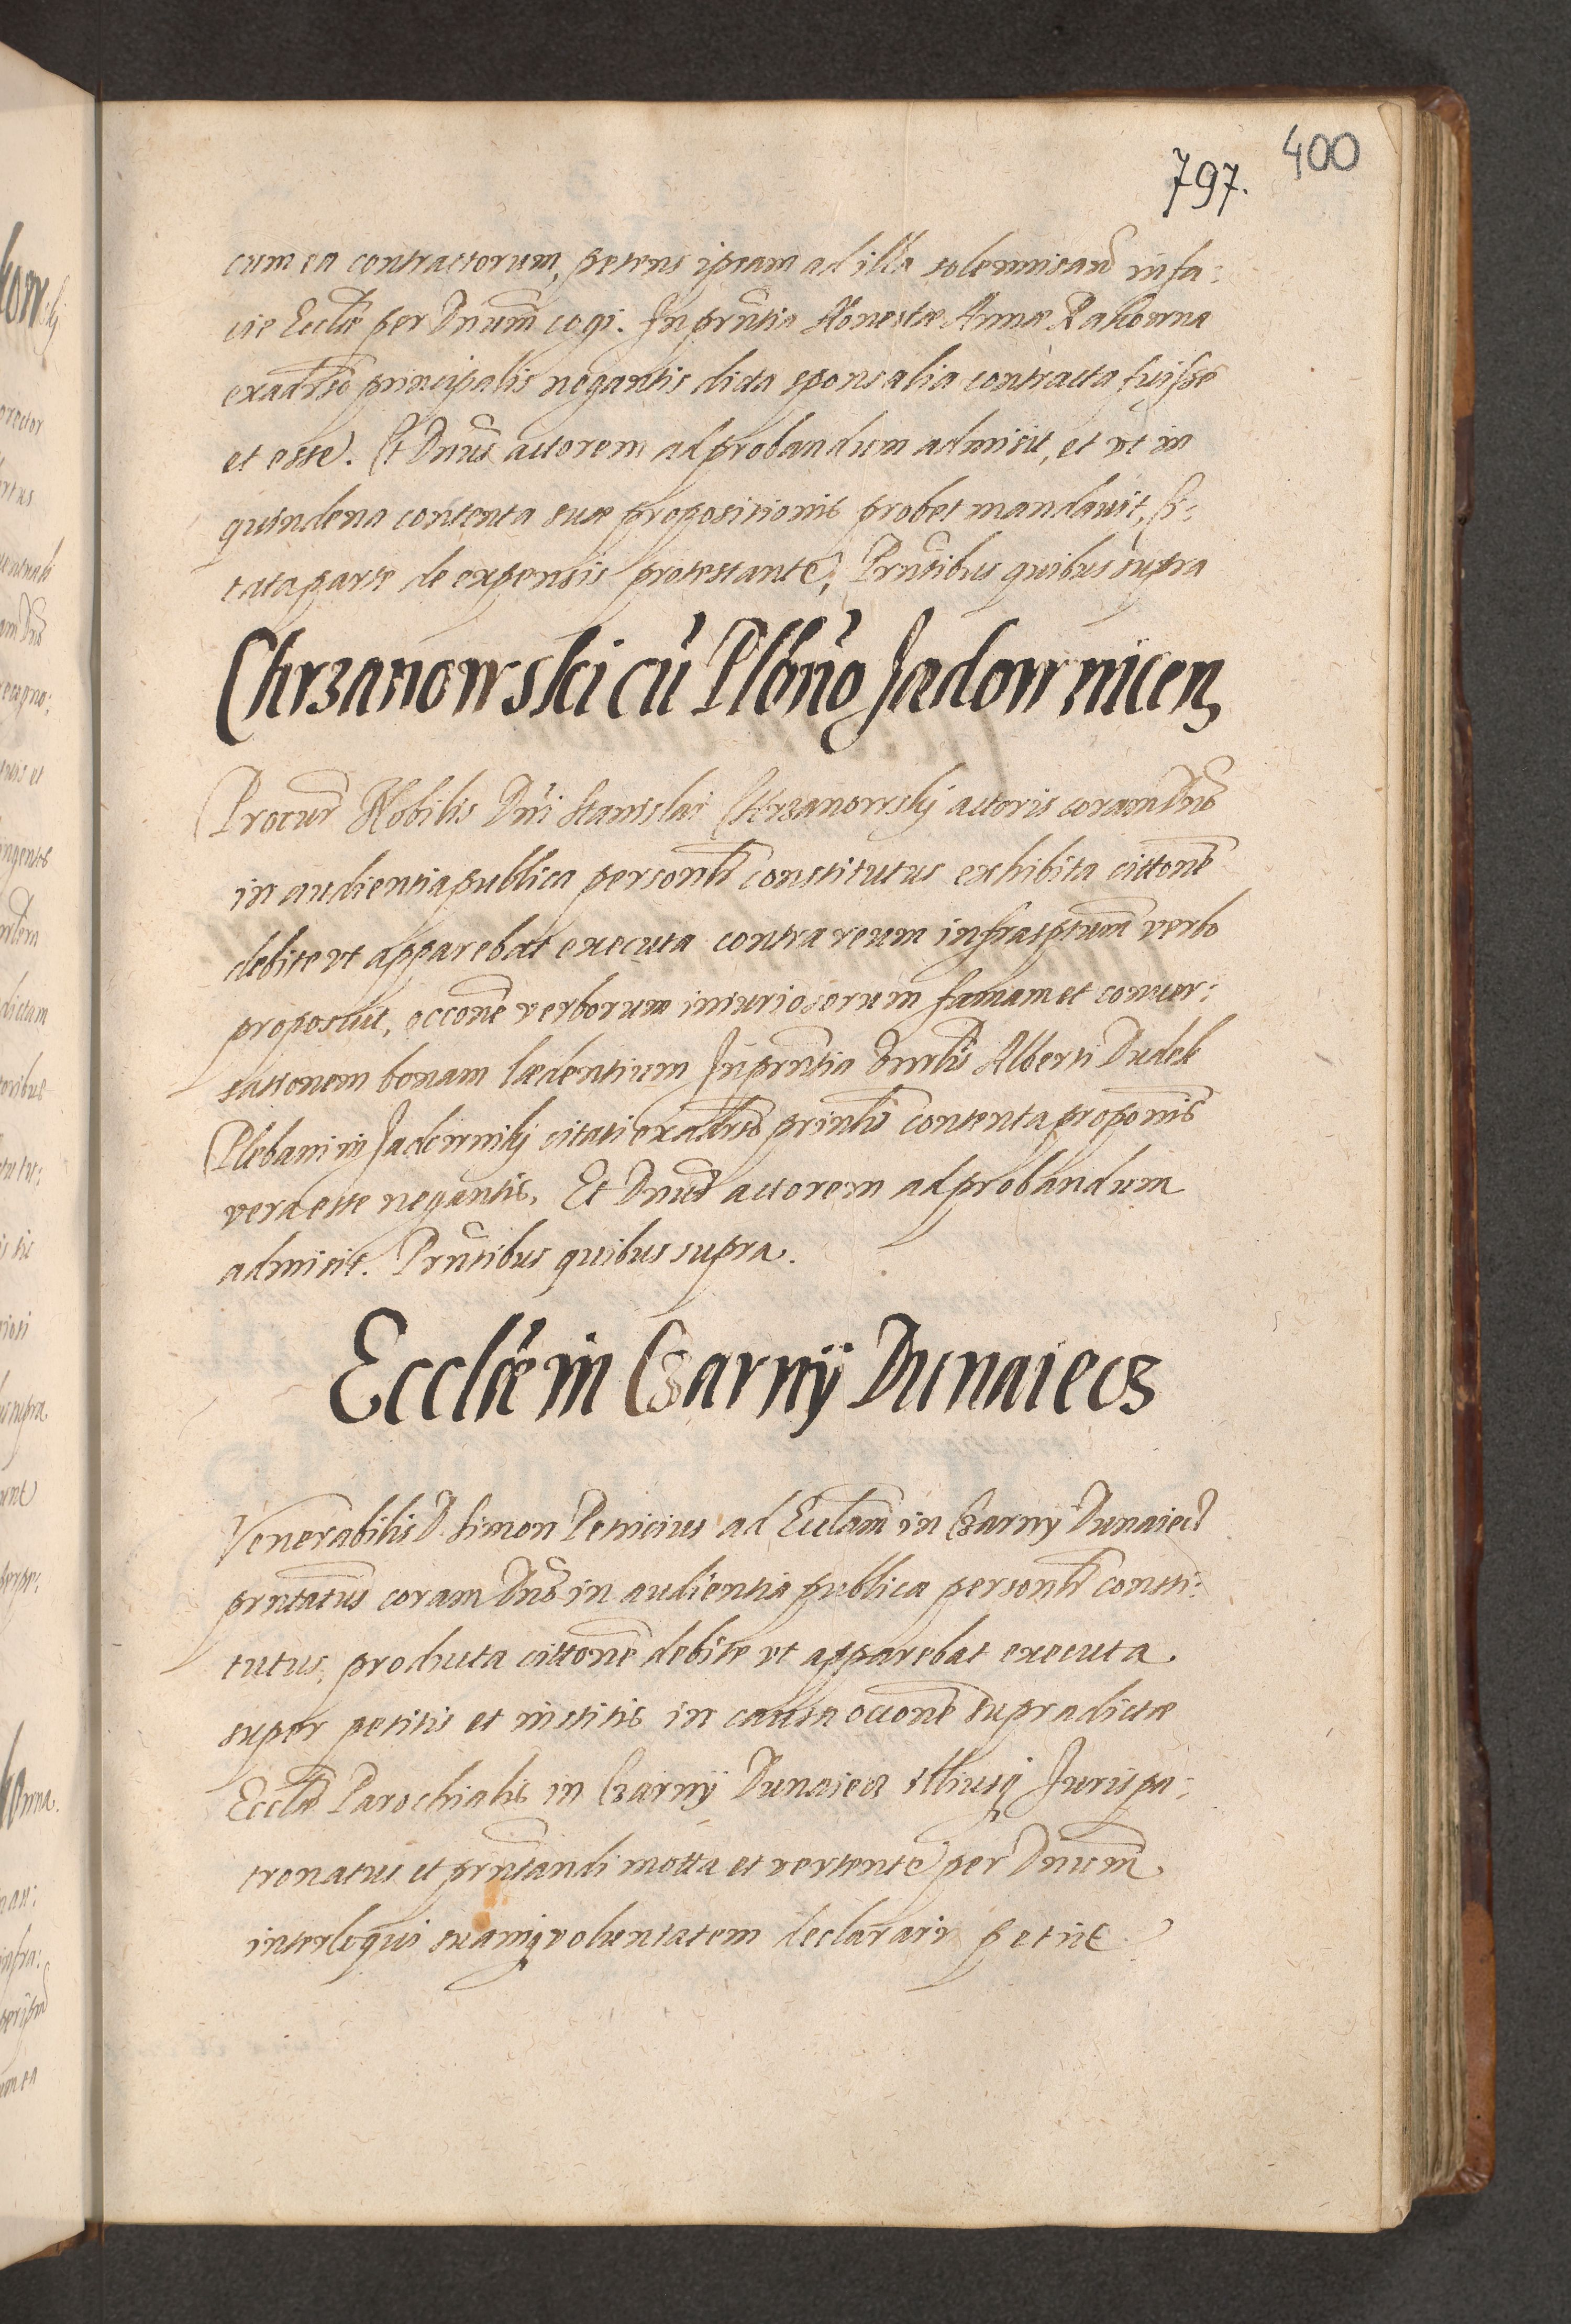 400
797.
cum ea contractorum, petens ipsam ad illa solemnisand in fa:
cie Eccliæ per Dnum cogi. In prntia Honestæ Annæ Rakowna
exadrso principalis negantis dicta sponsalia contracta fuisse
et esse. Et Dnus actorem ad probandum admisit, et vt in
quindena contenta suæ propositionis probet mandauit,
tata parte de expensis protestante, Prntibus quibus supra
Chrzanowski cū Plbno Jadownicen
Procur Nobilis Dni Stanislai Chrzanowskij actoris coram Dno
in audientia publica personlr constitutus exhibita cittone
debite vt apparebat executa contra reum infrasptum verbo
proposuit, occone verborum iniuriosorum famam et conuer:
sationem bonam lædentium In prntia Alberti Dudek
Plebani in Jadownikj citati exadrso prinlis contenta proponis
vera esse negantis. Et Dnus actorem ad probandum
admisit. Prntibus quibus supra.
Eccliæ in Czarnÿ Dunaiecz
Venerabilis D. Simon Petricius ad Ecclam in Czarny Dunaiecz
prntatus coram Dno in audientia publica personlr consti:
tutus, producta cittone debite vt apparebat executa
super petitis et institis in causa occone supradictæ
Eccliæ Parochialis in Czarnÿ Dunaiecz illiusq Juris pa:
tronatus et prntandi motta et vertente per Dnum
interloqui suamq voluntatem declarari petiit